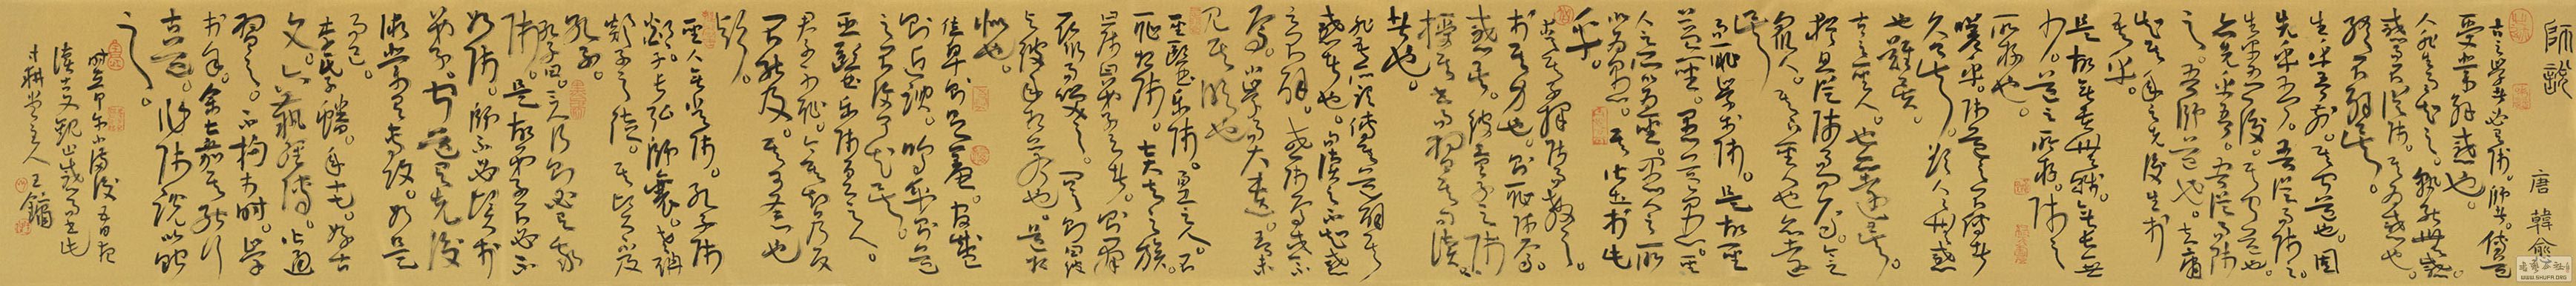 師說
唐 韓愈
古之學者必有師。師者。傳道
受業解惑也。
人非生而知之。孰能無惑。
惑而不從師。其為惑也。
終不解矣。
生乎吾前。其聞道也。固
先乎吾。吾從而師之。
生乎吾後。其聞道也。
亦先乎吾。吾從而師
之。吾師道也。夫庸
知其年之先後生於
吾乎。
是故無貴無賤。無長無
少。道之所存。師之
所存也。
嗟乎。師道之不傳也
久矣。欲人之無惑
也難矣。
古之聖人。其出人也遠矣。
猶且從師而問焉。今之
眾人。其下聖人也亦遠
矣。
而恥學於師。是故聖
益聖。愚益愚。聖
人之所以為聖。愚人之所
以為愚。其皆出於此
乎。
愛其子擇師而教之。
於其身也。則恥師焉。
惑矣。彼童子之師
授之書而習其句讀
者也。
非吾所謂傳其道解其
惑者也。句讀之不知惑
之不解。或師焉或不
焉。小學而大遺。吾未
見其明也
巫醫樂師。百工之人。不
恥相師。士大夫之族。
曰師曰弟子云者。則群
聚而笑之。問之則曰彼
與彼年相若也。道相
似也。
位卑則足羞。官盛
則近諛。嗚呼。師道
之不復可知矣。
巫醫樂師百工之人。
君子不齒。今其智乃反
不能及。其可怪也
歟。
聖人無常師。孔子師
郯子萇弘師襄。老聃
郯子之徒。其賢不及
孔子。
孔子曰。三人行則必有我
師。是故弟子不必不
如師。師不必賢於
弟子。聞道有先後
術業有專攻。如是
而已。
李氏子蟠。年十七。好古
文。六藝經傳。皆通
習之。不拘於時。學
於余。余嘉其能行
古道。作師說以貽
之。
時在甲午小滿後五日
主人王鏞
WWW.SHUFA.ORG